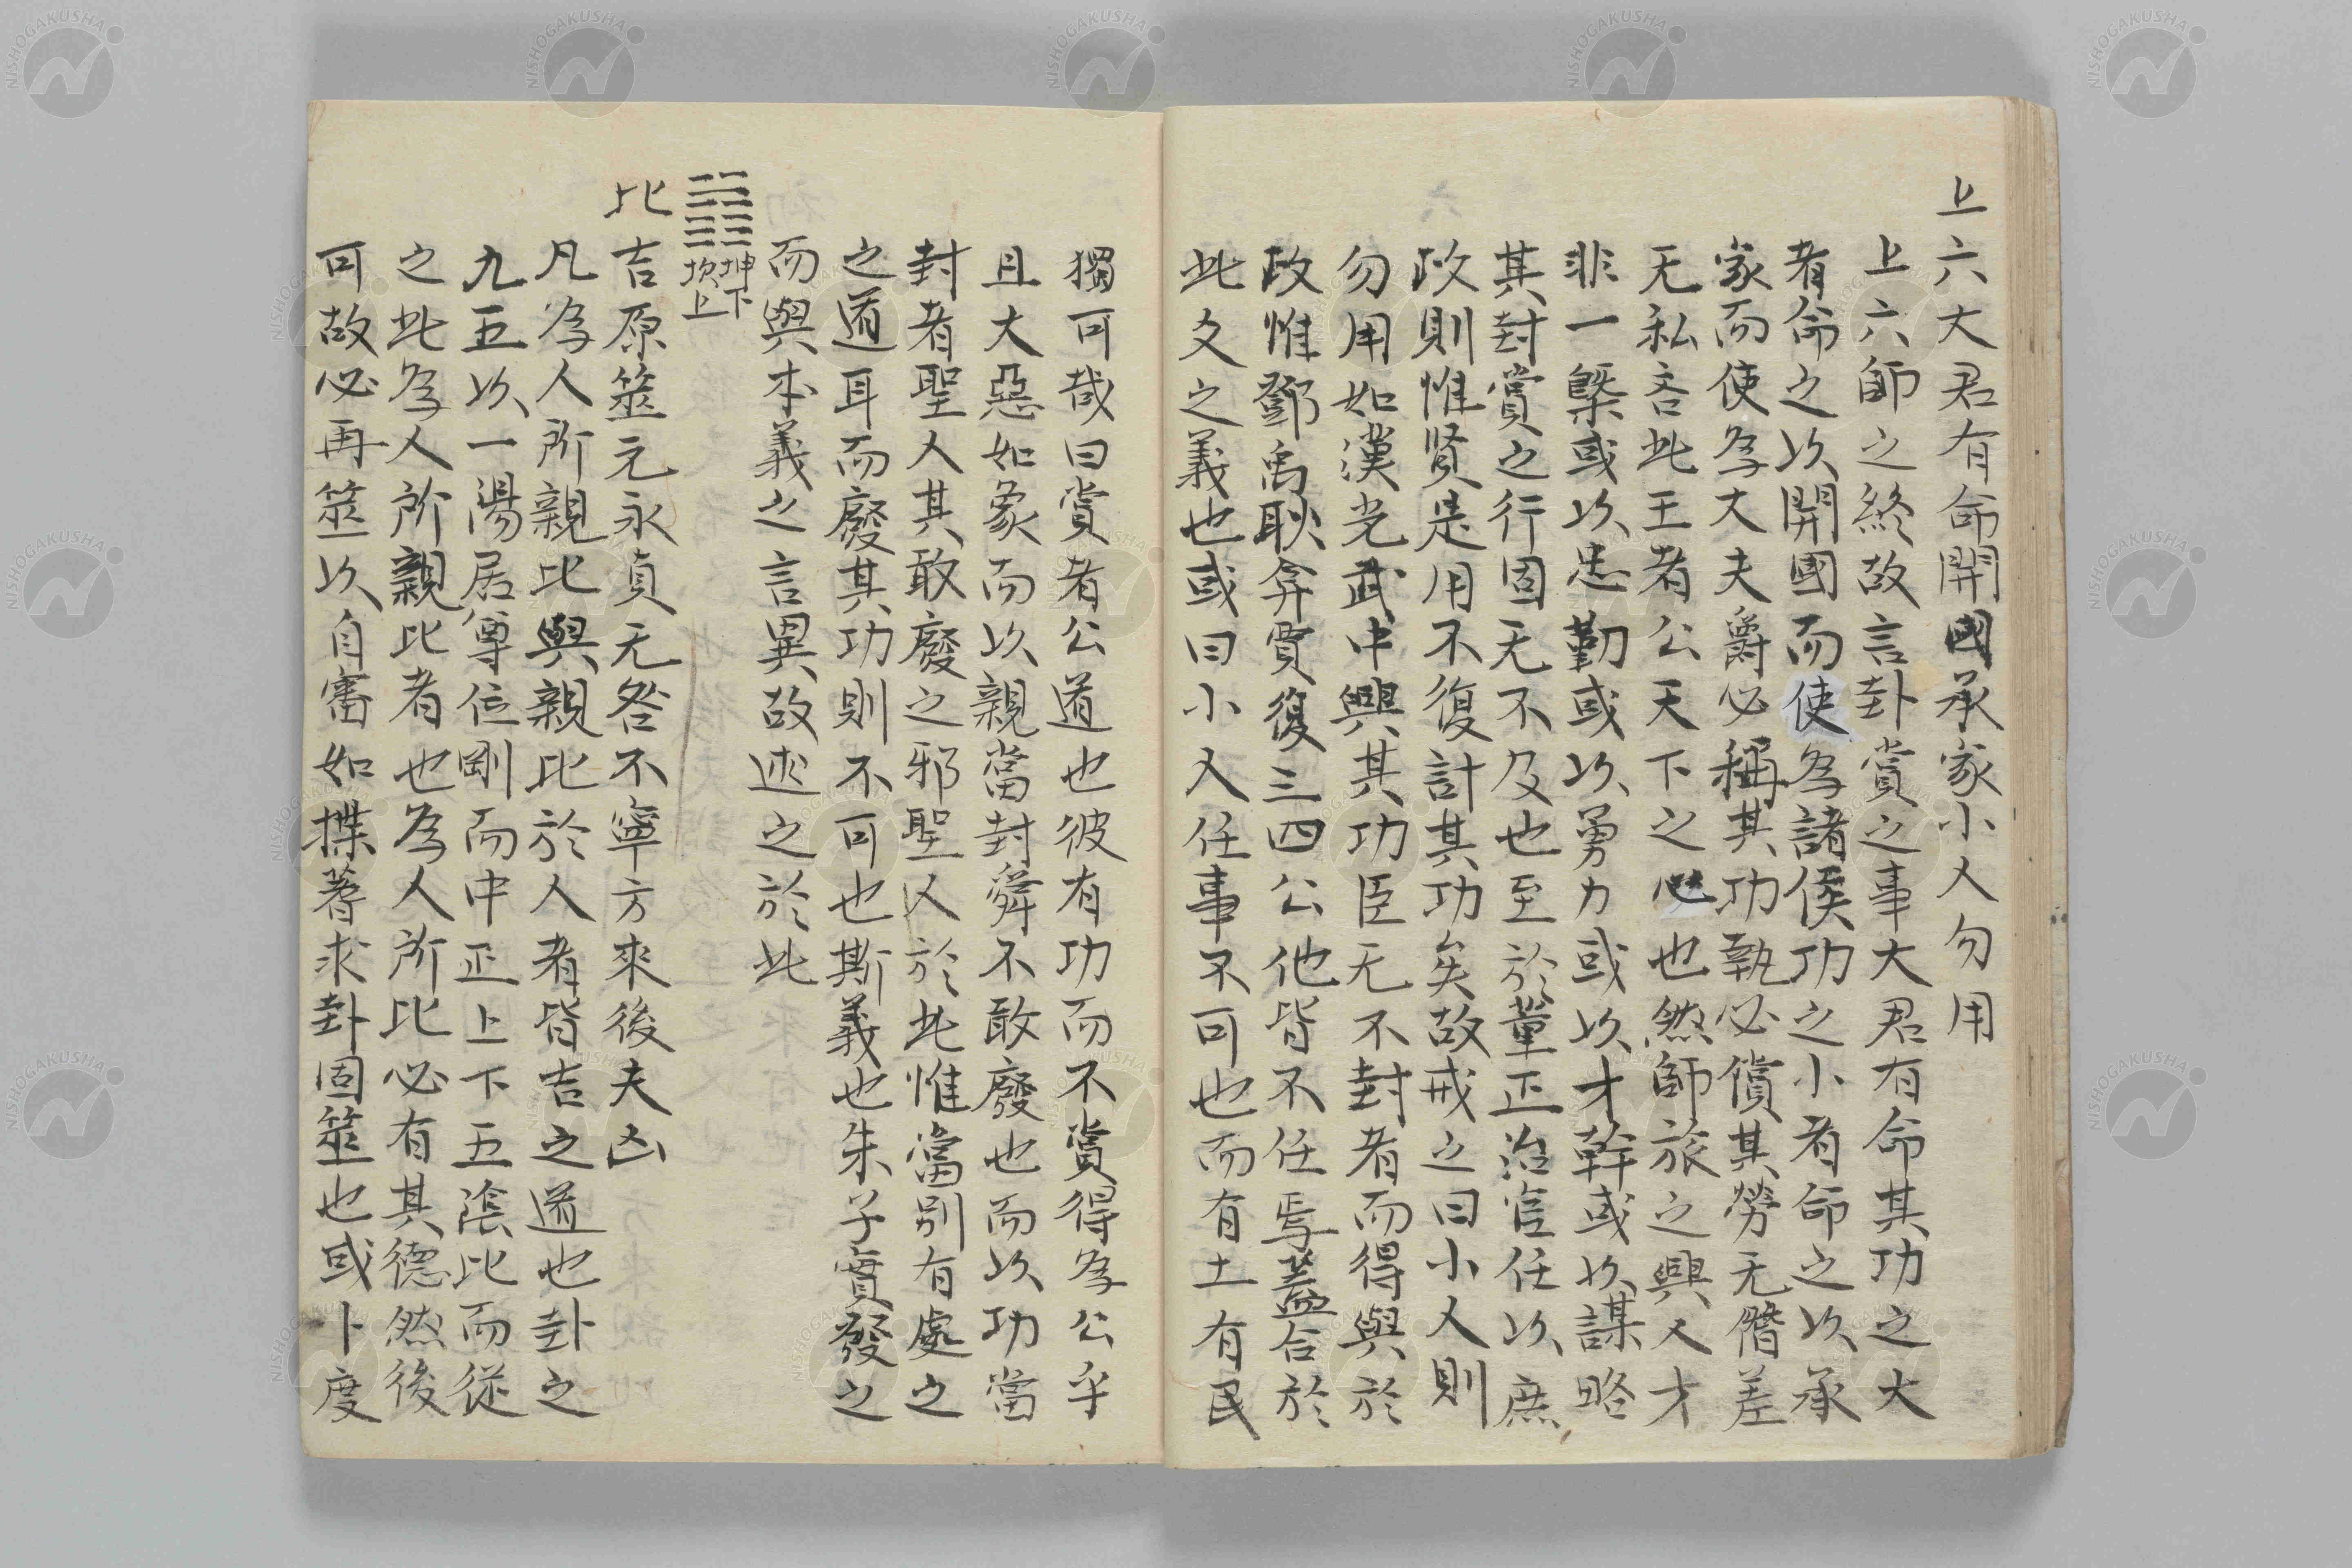 上六大君有命開國承家小人勿用
上六師之終故言卦賞之事大君有命其功之大
者命之以開國而使爲諸侯功之小者命之以承
家而使爲大夫爵必稱其功執必償其勞无僭差
无私吝此王者公天下之心也然師旅之興人才
非一槩或以忠勤或以勇力或以才幹或以謀略
其封賞之行固无不及也至於董正治官任以庶
政則惟賢是用不復計其功矣故戒之曰小人則
勿用如漢光武中興其功臣无不封者而得與於
政惟鄧禹耿弇賈復三四公他皆不任焉蓋合於
此爻之義也或曰小人任事不可也而有土有民
獨可哉曰賞者公道也彼有功而不賞得爲公乎
且大惡如象而以親當封舜不敢廢也而以功當
封者聖人其敢廢之邪聖人於此惟當別有處之
之道耳而廢其功則不可也斯義也朱子實發之
而與本義之言異故述之於此
坤下
坎上
比吉原筮元永貞无咎不寧方來後夫凶
凡爲人所親比與親比於人者皆吉之道也卦之
九五以一陽居尊位剛而中正上下五陰比而從
之此爲人所親比者也爲人所比必有其德然後
可故必再筮以自審如揲蓍求卦固筮也或卜度
NISHOGAKUSHA